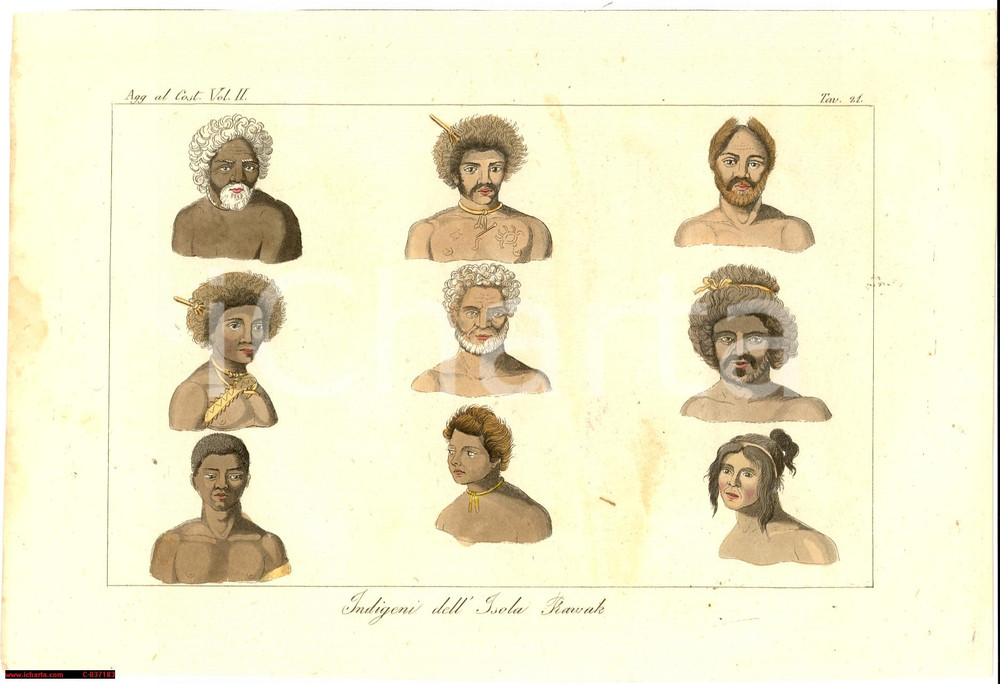 Agg al Cost. Vol. II.
Tav. 21.
iCharta
Indigeni dell' Isola Rawak
www.icharta.com C-837183